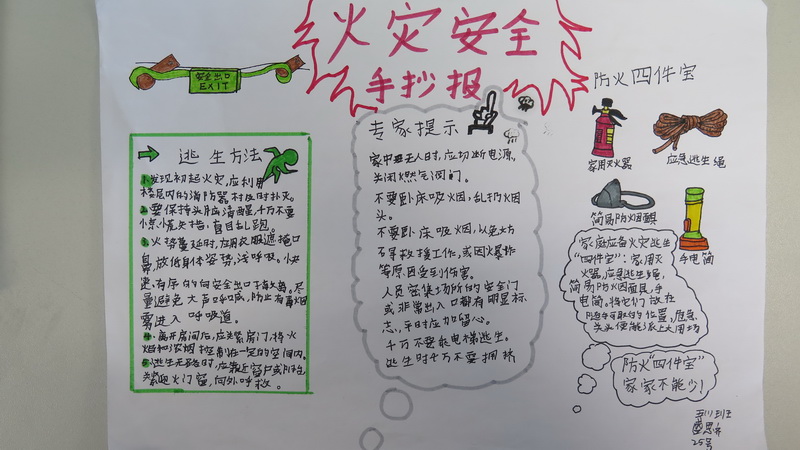 火灾安全
手抄报
安全出口
EXIT
逃生方法
1.发现初起火灾,应利用
楼层内的消防器材及时扑灭。
2.要保持头脑清醒,千万不要
惊慌失措,盲目乱跑。
3.火势蔓延时,应用衣服遮掩口
鼻,放低身体姿势,浅呼吸。快
速、有序的向安全出口撤离。尽
量避免大声呼喊,防止有毒烟
雾进入呼吸道。
4.离开房间后,应关紧房门,将火
焰和浓烟控制在一定的空间内。
5.逃生无路时,应靠近窗户或阳台,
关紧迎火门窗,向外呼救。
专家提示
家中无人时,应切断电源,
关闭燃气阀门。
不要卧床吸烟,乱扔烟
头。
不要卧床吸烟,以免
救援工作,或因爆炸
等原因受到伤害。
人员密集场所的安全门
或非常出入口都有明显标
志,平时应加留心。
千万不要乘电梯逃生。
逃生时千万不要拥挤
防火四件宝
家用灭火器
应急逃生绳
简易防烟面具
手电筒
家庭应备火灾逃生
“四件宝”:家用灭
火器,应急逃生绳,
简易防烟面具,手
电筒。将它们放在
随手可取的位置,危急
关头便能派上大用场
防火“四件宝”
家家不能少!
25号